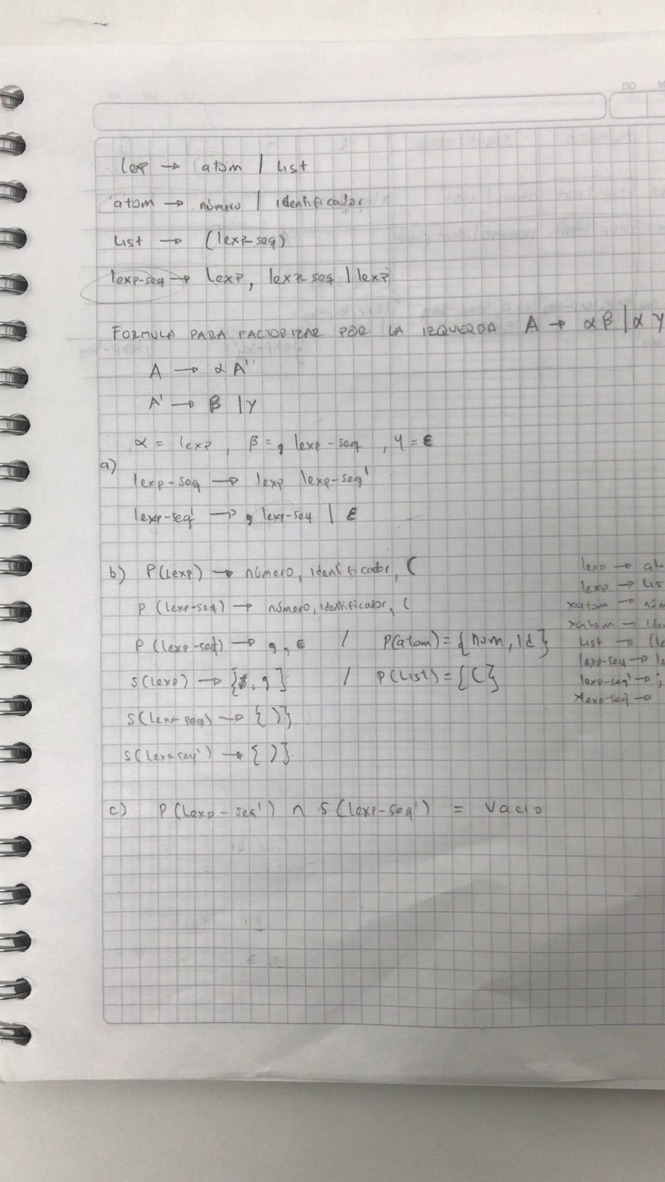 lexp → atom | List
atom → número | identificador
List → (lexp-seq)
lexp-seq → lexp, lexp-seq | lexp
FORMULA PARA FACTORIZAR POR LA IZQUIERDA A → αβ | αγ
A → αA'
A' → β | γ
α = lexp, β = , lexp-seq, γ = ε
a)
lexp-seq → lexp lexp-seq'
lexp-seq' → , lexp-seq | ε
b) P(lexp) → número, identificador, (
P(lexp-seq) → número, identificador, (
P(lexp-seq') → , , ε / P(atom) = {num, id}
S(lexp) → {$, ,} / P(List) = {(}
S(lexp-seq) → {)}
S(lexp-seq') → {)}
c) P(lexp-seq') ∩ S(lexp-seq') = vacio
lexp → at
lexp → Lis
xatom → núm
xatom → ide
List → (le
lexp-seq → le
lexp-seq' → ,
xlexp-seq' →